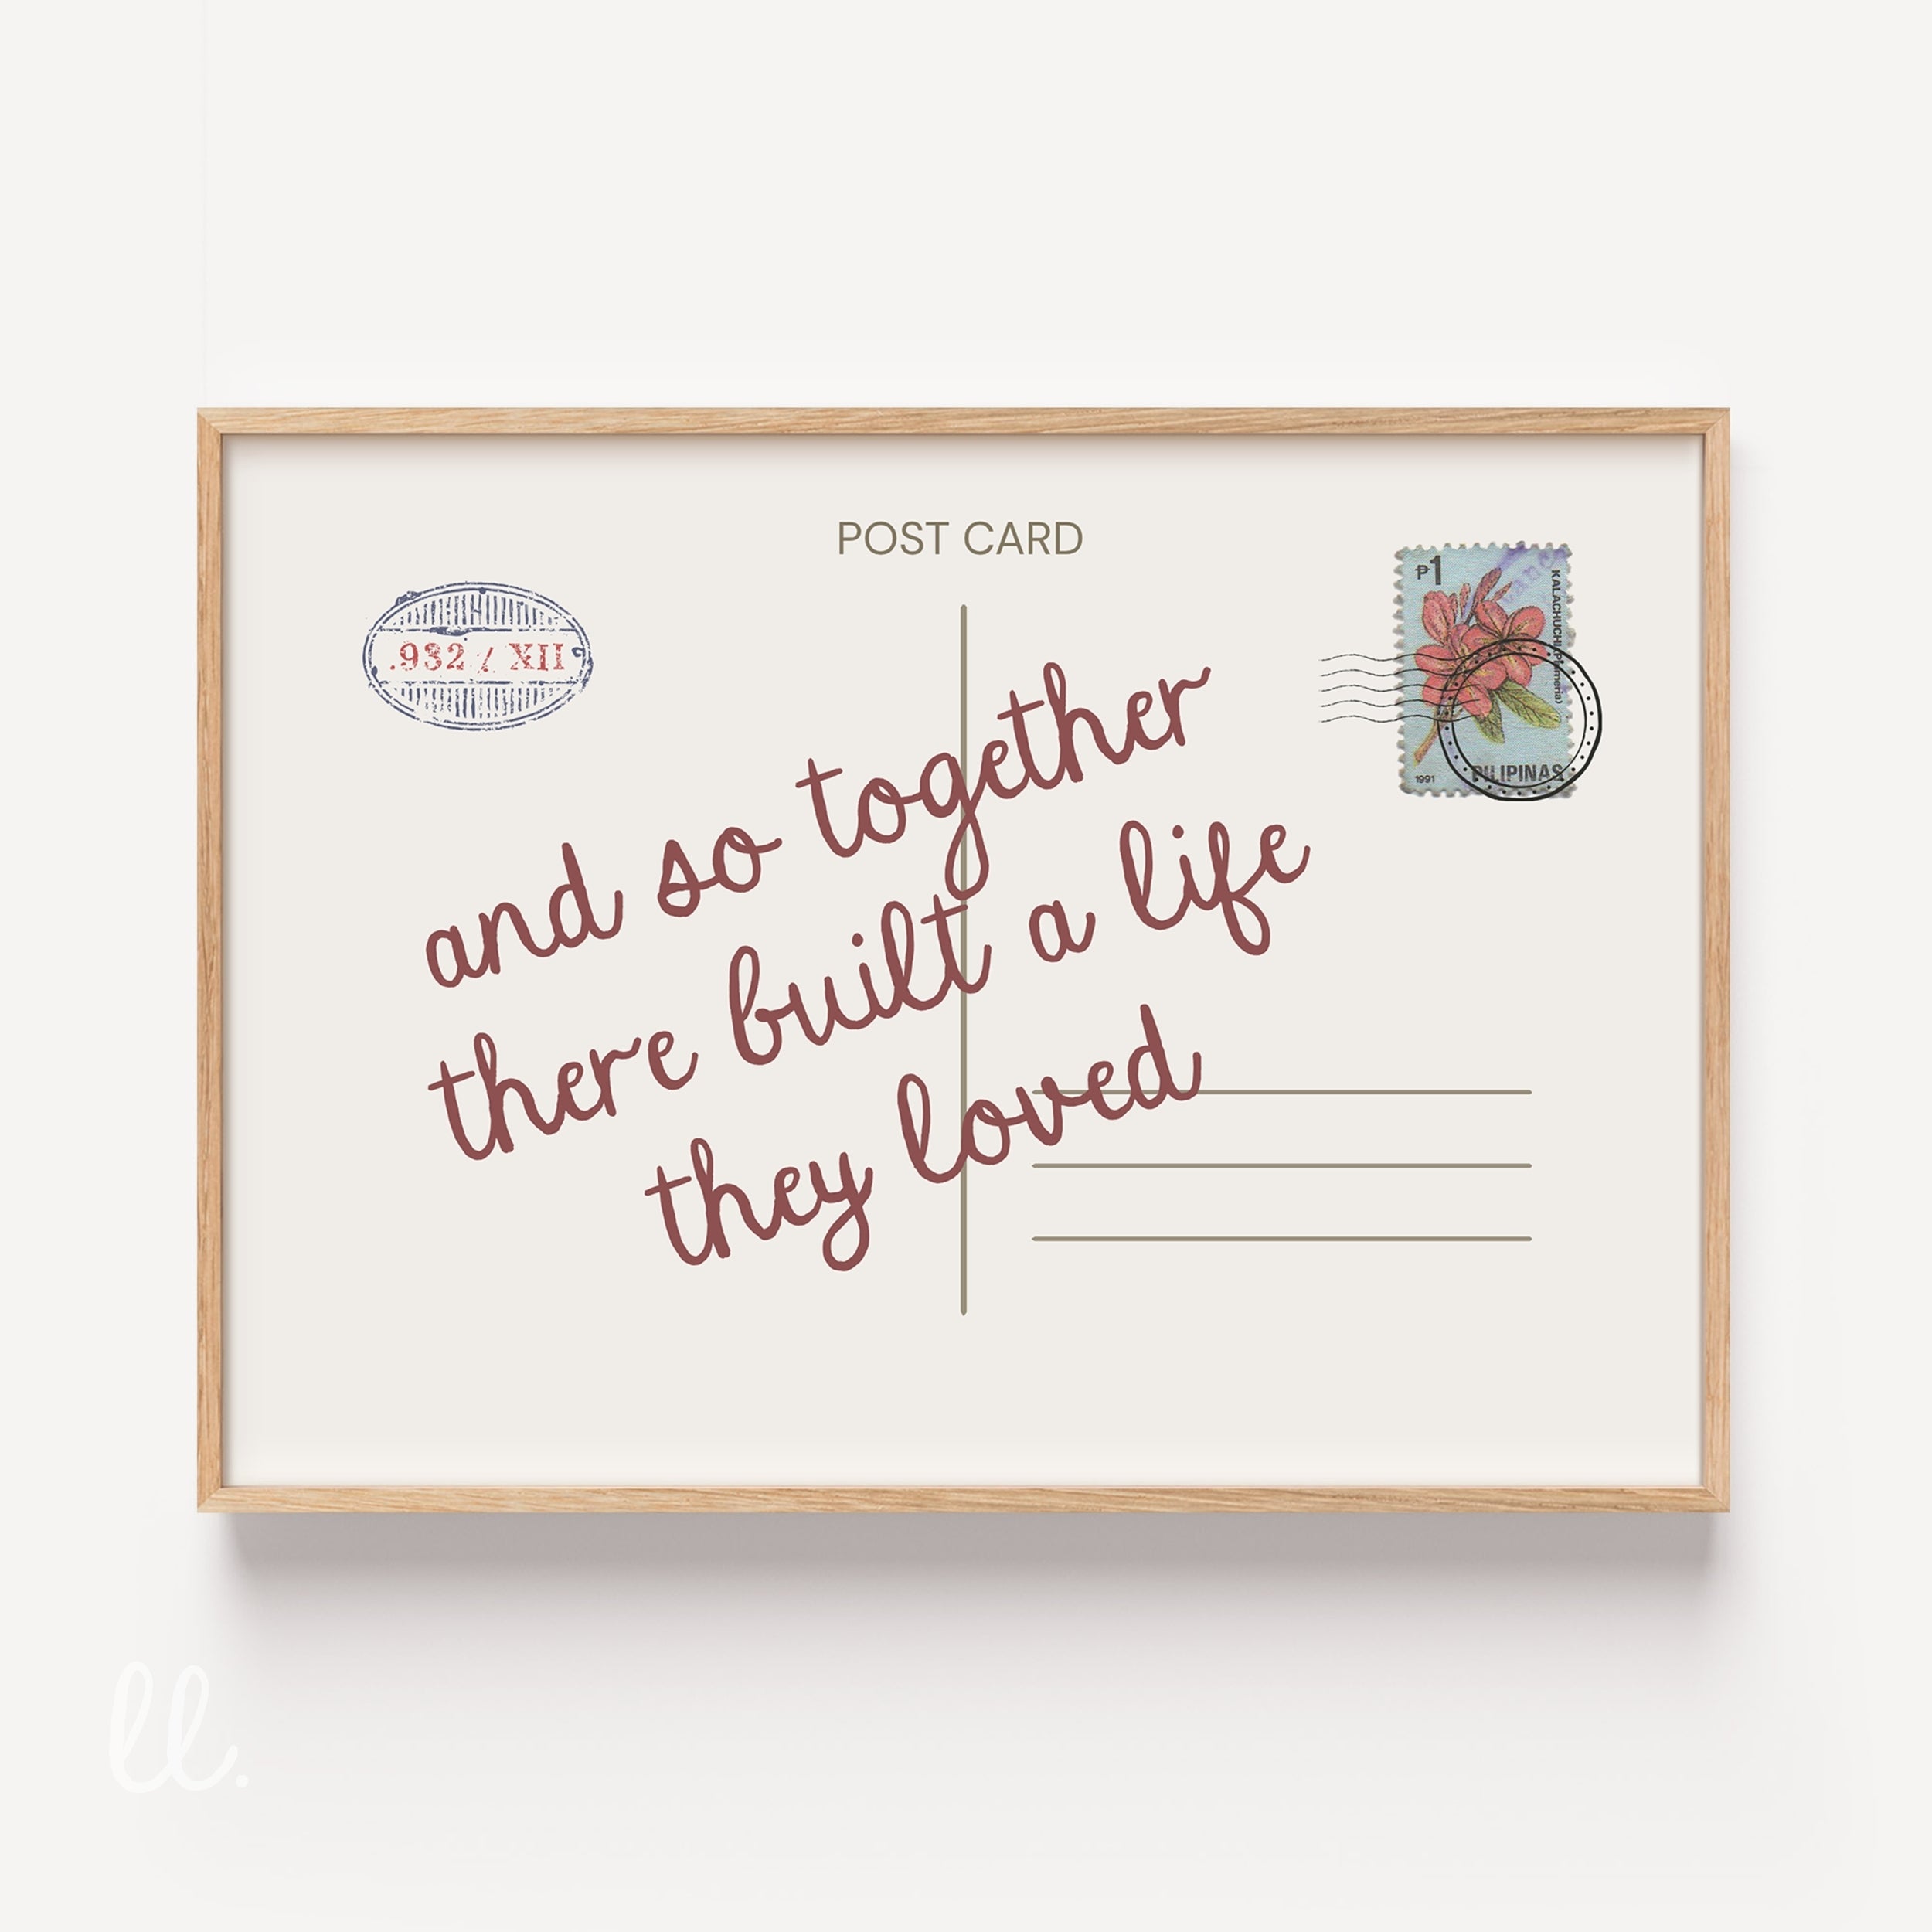 POST CARD
.932 / XII
₱1
KALACHUCHI (Plumeria)
1991
PILIPINAS
and so together
there built a life
they loved
ll.